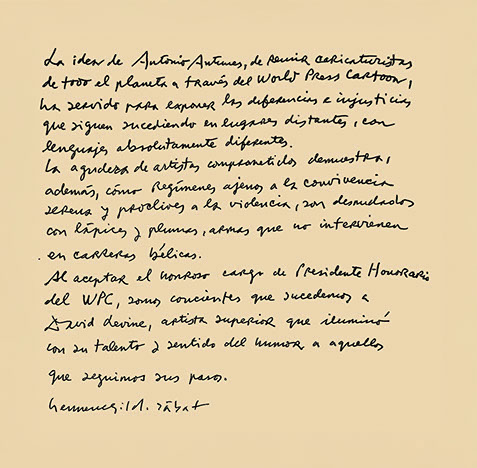 La idea de Antonio Antunes, de reunir caricaturistas
de todo el planeta a través del World Press Cartoon,
ha servido para exponer las diferencias e injusticias
que siguen sucediendo en lugares distantes, con
lenguajes absolutamente diferentes.
La agudeza de artistas comprometidos demuestra,
además, cómo Regímenes ajenos a la convivencia
serena y proclives a la violencia, son desnudados
con lápices y plumas, armas que no intervienen
en carreras bélicas.
Al aceptar el honroso cargo de Presidente Honorario
del WPC, somos concientes que sucedemos a
David Levine, artista superior que iluminó
con su talento y sentido del humor a aquellos
que seguimos sus pasos.
Hermenegildo Sábat